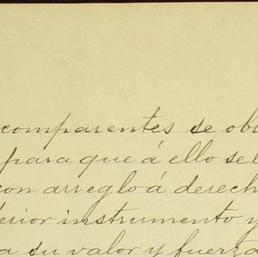 comparentes se obli
para que á ello se le
con arreglo á derech
erior instrumento y
a su valor y fuerza